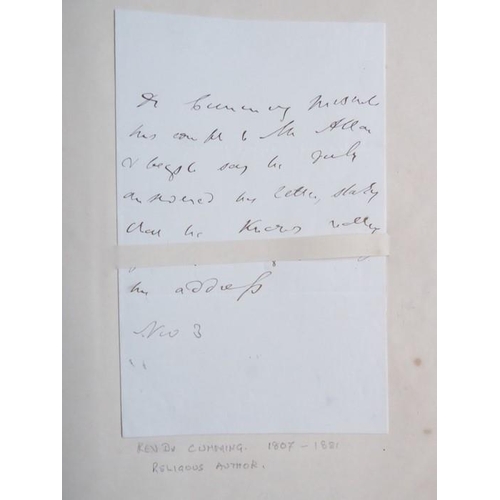 Dr Cumming presents
his compts to Mr Allan
& begs to say he duly
answered his letter, stating
that he knows nothing
his address
Nov 3
REV. DR CUMMING. 1807 - 1881
RELIGOUS AUTHOR.